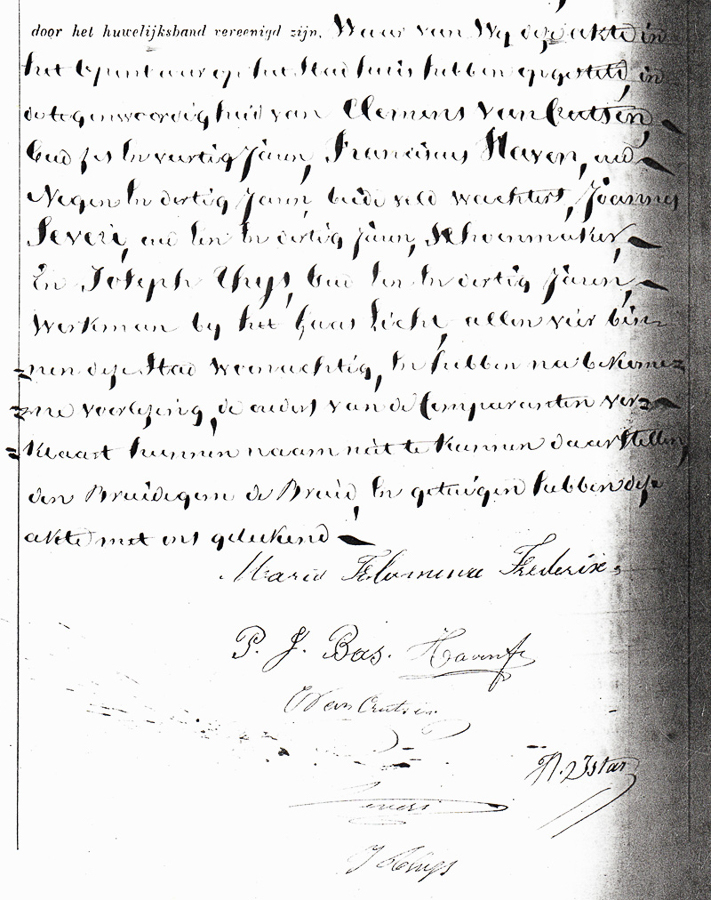 door het huwelijksband vereenigd zijn. Waar van Wy deze akte in
het openbaar op het Stad huis hebben opgesteld, in
de tegenwoordigheid van Clemens Van Crutsen,
oud zes En veertig Jaren, Franciscus Haven, oud
Negen En dertig Jaren, beide veld wachters, Joannes
Severi, oud een En dertig Jaren, Schoenmaker,
En Joseph Thys, oud een En dertig Jaren,
Werkman by het Gaas Licht, allen vier bin-
nen deze Stad woonachtig, En hebben na bekome-
ne voorlezing, de ouders van de Comparanten ver-
klaart hunnen naam niet te kunnen daarstellen,
den Bruidegom de Bruid, En getuigen hebben deze
akte met ons geteekend
Maria Filomina Frederix
P. J. Bas. Haven
C Van Crutsen
Severi
J Thys